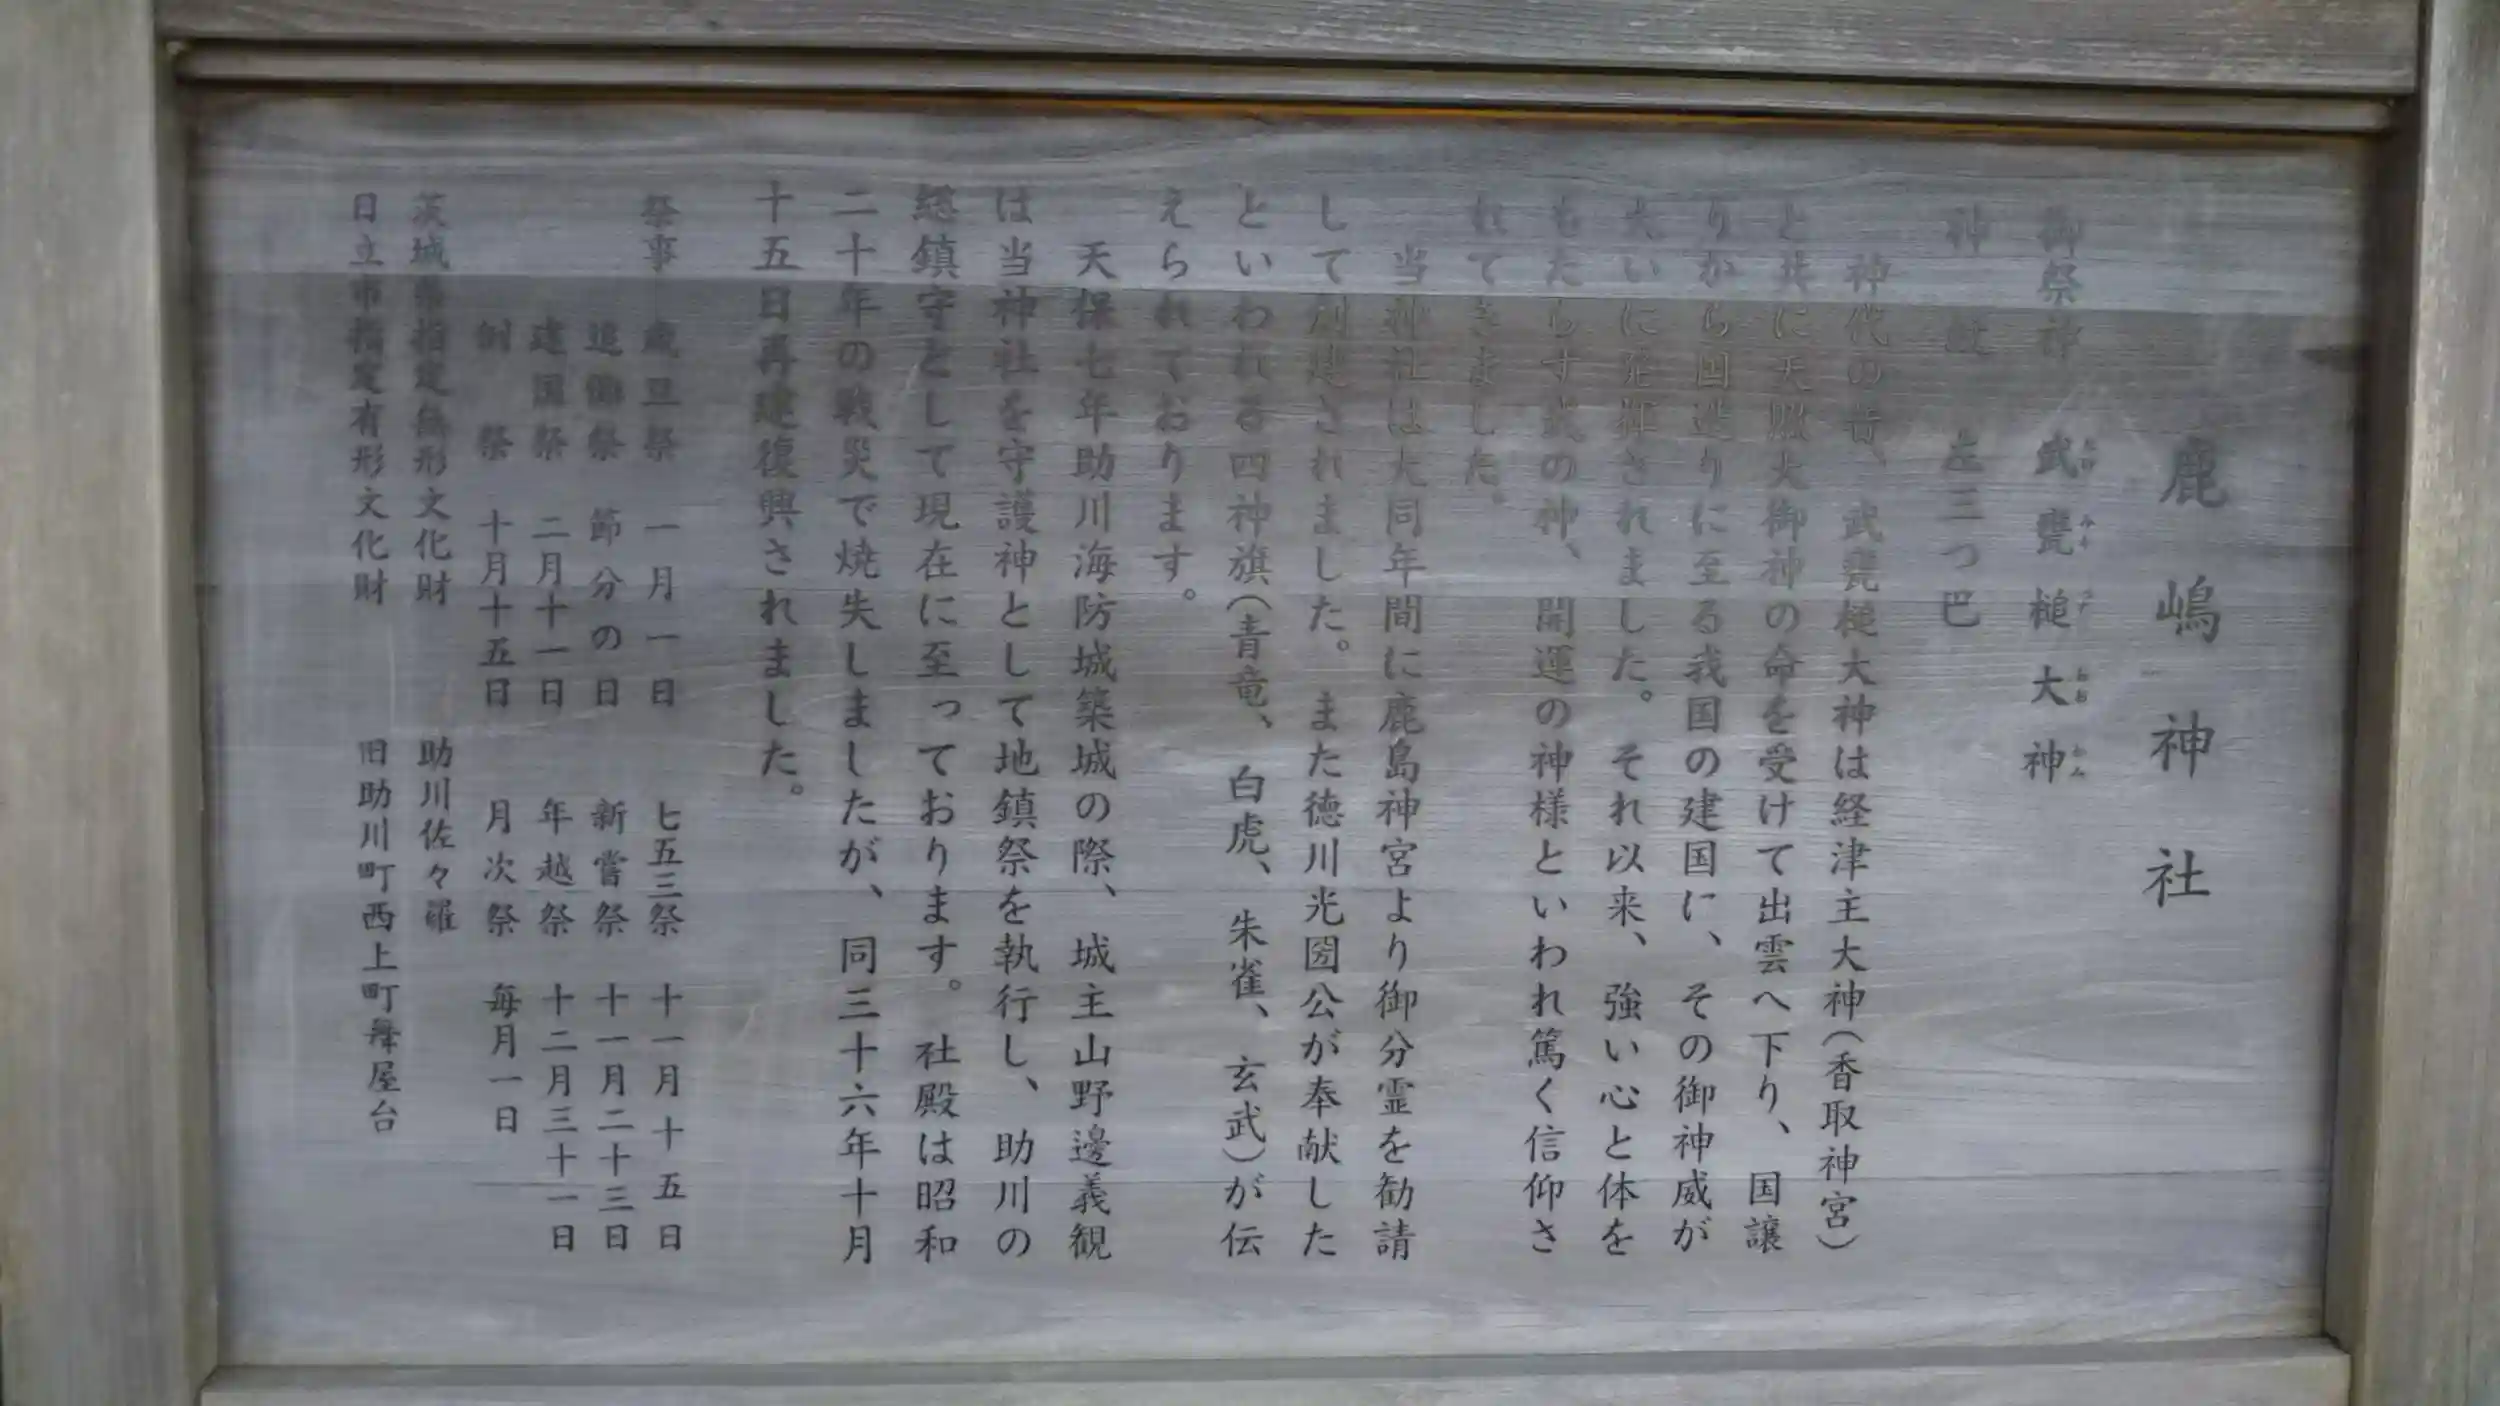 鹿嶋神社
御祭神 武甕槌大神
たけ みか づち おお かみ
神紋 左三つ巴
神代の昔、武甕槌大神は経津主大神（香取神宮）
と共に天照大御神の命を受けて出雲へ下り、国譲
りから国巡りに至る我国の建国に、その御神威が
大いに発揮されました。それ以来、強い心と体を
もたらす武の神、開運の神様といわれ篤く信仰さ
れてきました。
当神社は大同年間に鹿島神宮より御分霊を勧請
して創建されました。また徳川光圀公が奉献した
といわれる四神旗（青竜、白虎、朱雀、玄武）が伝
えられております。
天保七年助川海防城築城の際、城主山野邊義観
は当神社を守護神として地鎮祭を執行し、助川の
総鎮守として現在に至っております。社殿は昭和
二十年の戦災で焼失しましたが、同三十六年十月
十五日再建復興されました。
祭事 歳旦祭 一月一日 七五三祭 十一月十五日
追儺祭 節分の日 新嘗祭 十一月二十三日
建国祭 二月十一日 年越祭 十二月三十一日
例祭 十月十五日 月次祭 毎月一日
茨城県指定無形文化財 助川佐々羅
日立市指定有形文化財 旧助川町西上町舞屋台